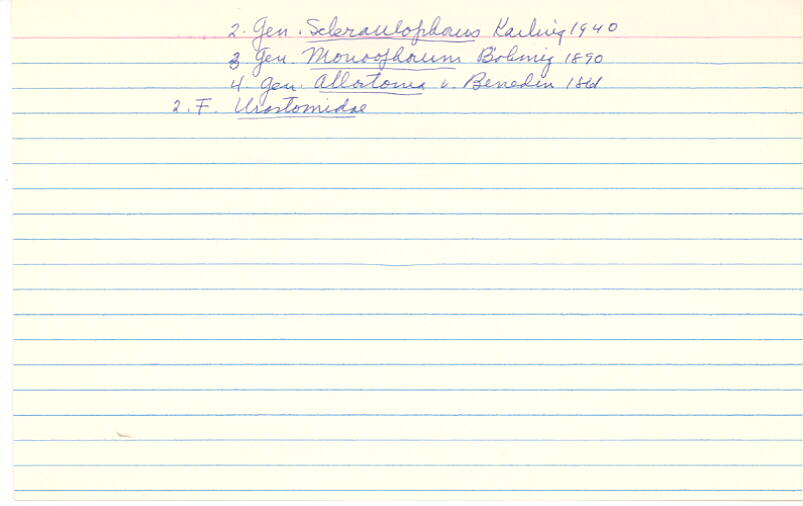 2. Gen. Scleraulophorus Karling 1940
3 Gen. Monoophorum Böhmig 1890
4. Gen. Allostoma v. Beneden 1861
2. F. Urastomidae